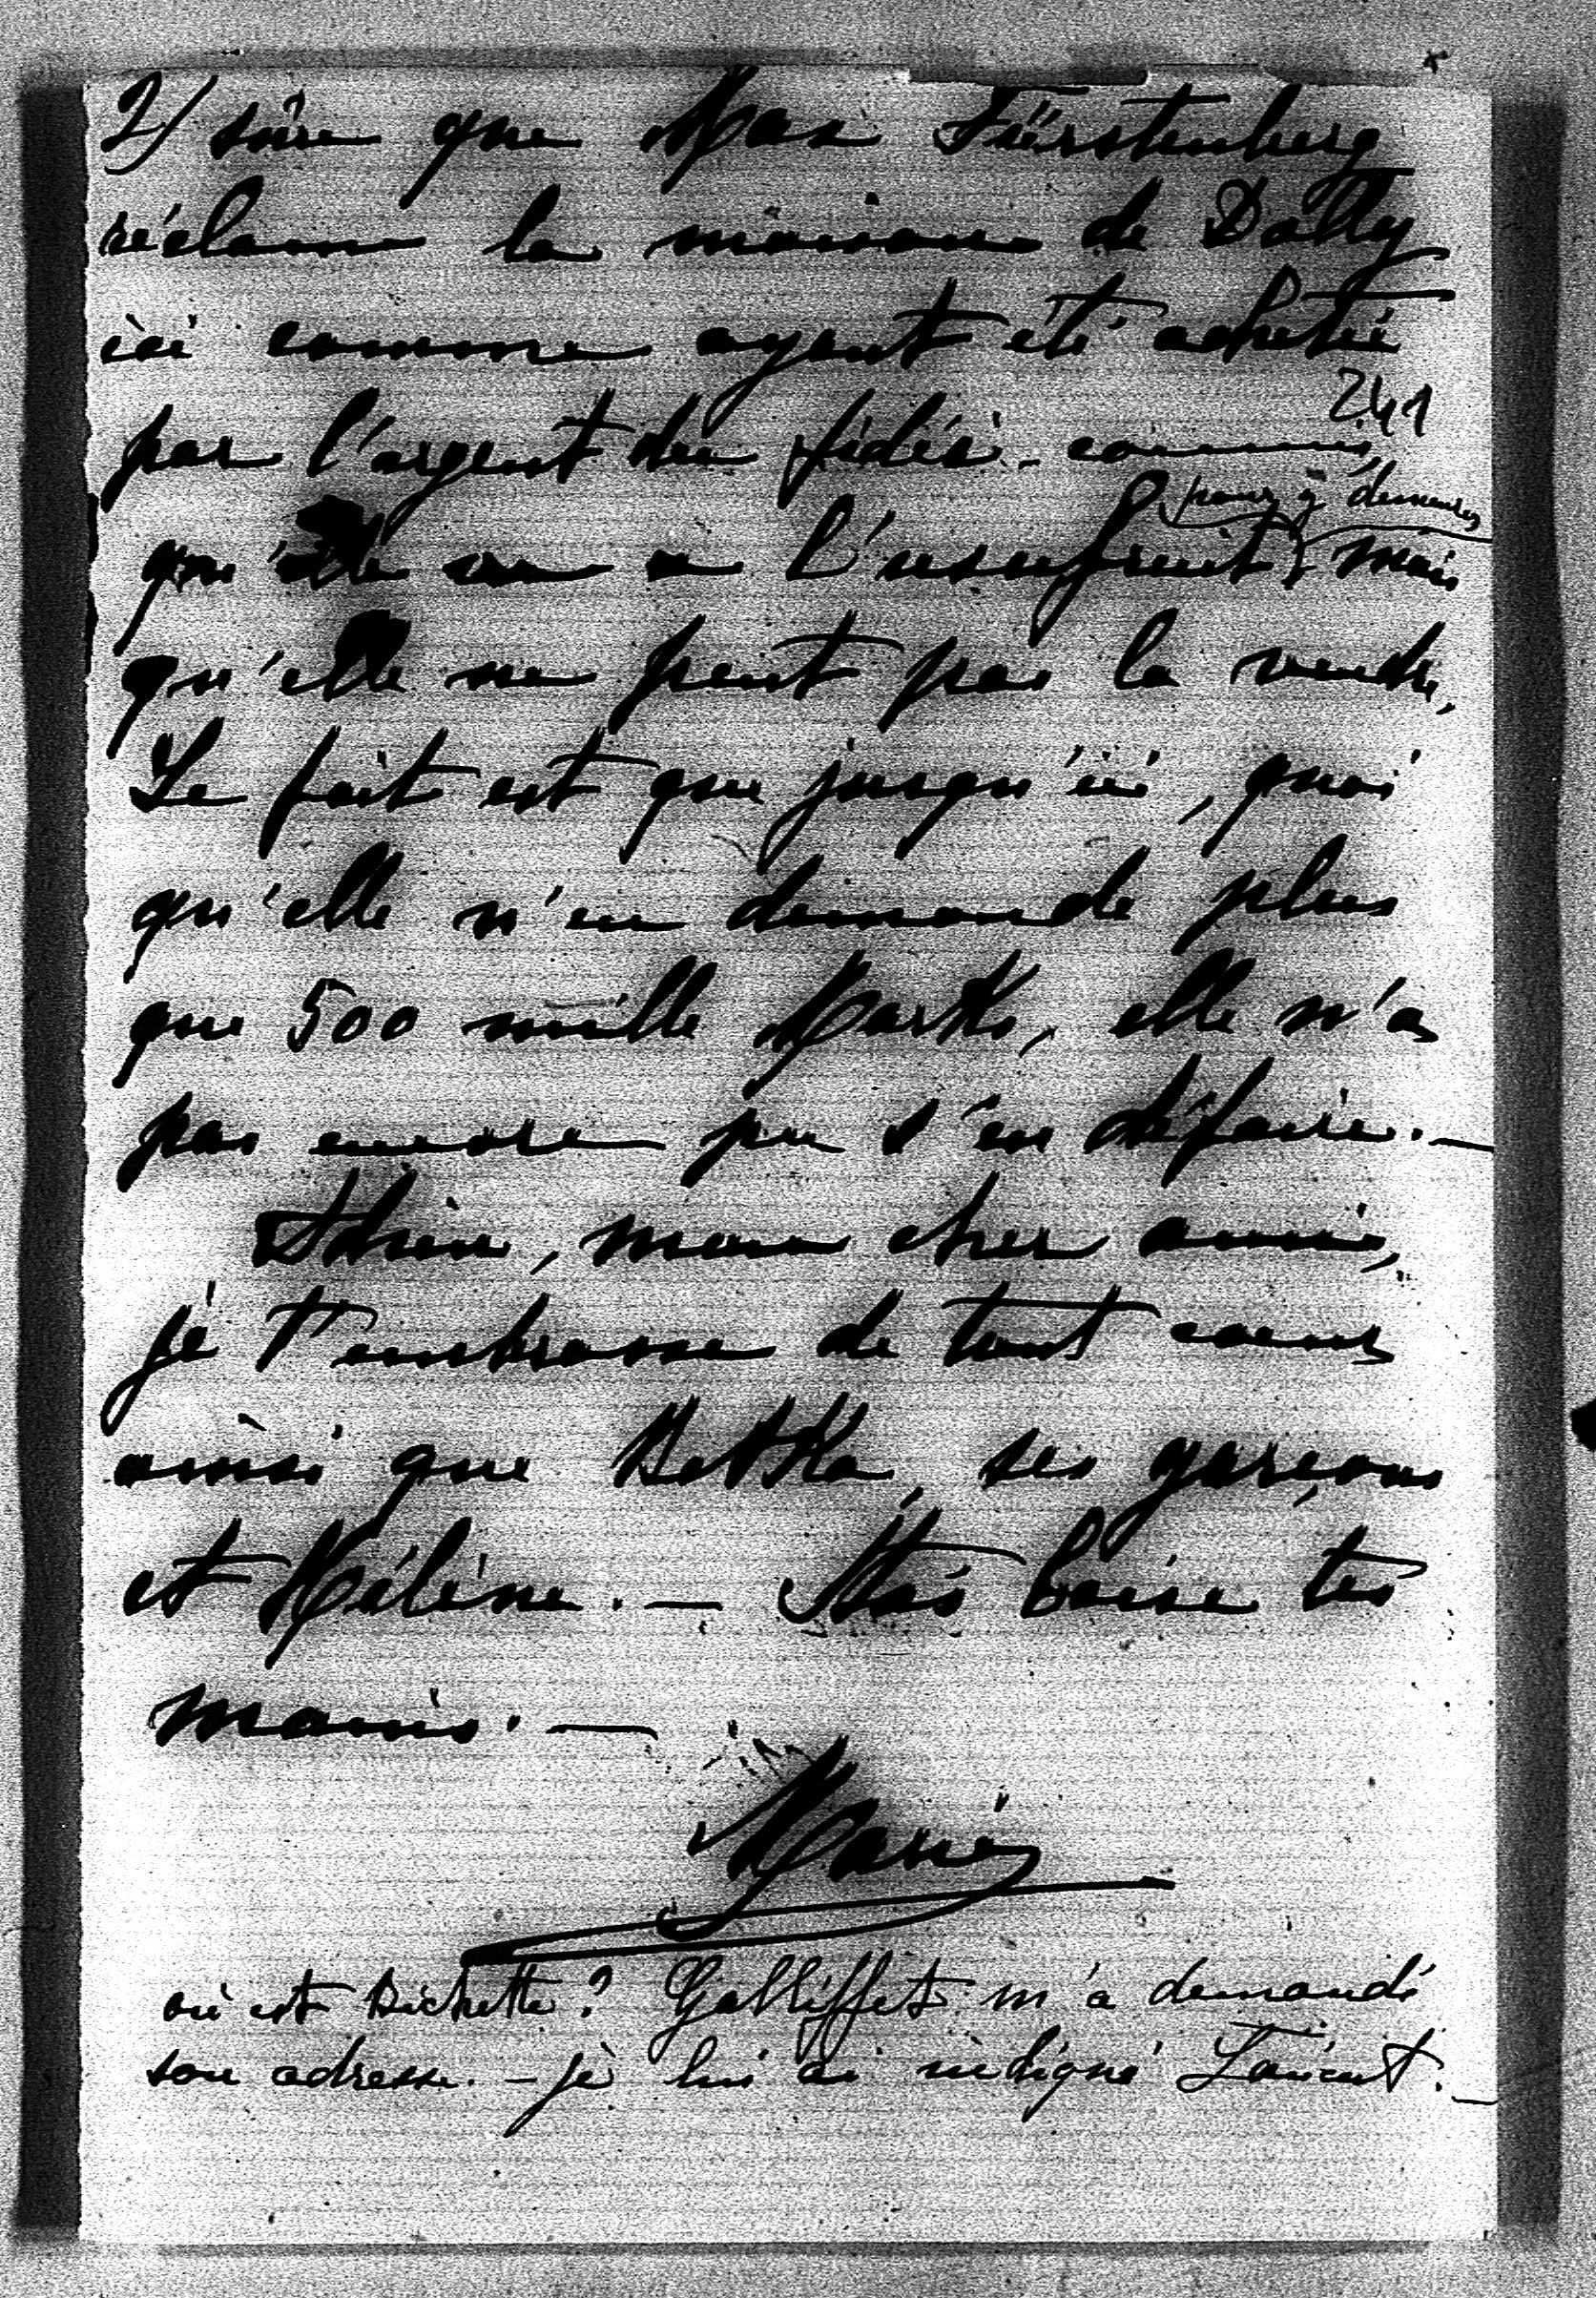 2/ sûre que Max Fürstenberg
réclame la maison de Dolly
ici comme ayant été achetée
241
par l'argent du fidéi-commis,
pour y demeurer
qu'elle en a l'usufruit, mais
qu'elle ne peut pas la vendre,
Le fait est que jusqu'ici, quoi
qu'elle n'en demande plus
que 500 mille Marks, elle n'a
pas encore pu s'en défaire. —
Adieu, mon cher ami,
je t'embrasse de tout cœur
ainsi que Betka, ses garçons
et Hélène. — Stas baise tes
mains. —
Marie
où est Bichette? Galliffet m'a demandé
son adresse. — je lui ai indiqué Łańcut. —